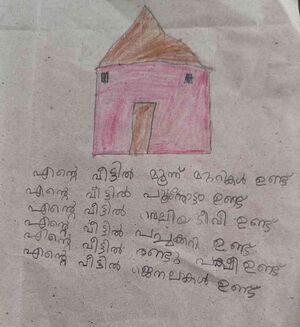 എന്റെ വീട്ടിൽ മൂന്ന് മുറികൾ ഉണ്ട്
എന്റെ വീട്ടിൽ പൂന്തോട്ടം ഉണ്ട്
എന്റെ വീട്ടിൽ വലിയ ടീവി ഉണ്ട്
എന്റെ വീട്ടിൽ പച്ചക്കറി ഉണ്ട്
എന്റെ വീട്ടിൽ രണ്ടു പക്ഷി ഉണ്ട്
എന്റെ വീട്ടിൽ ജനലകൾ ഉണ്ട്